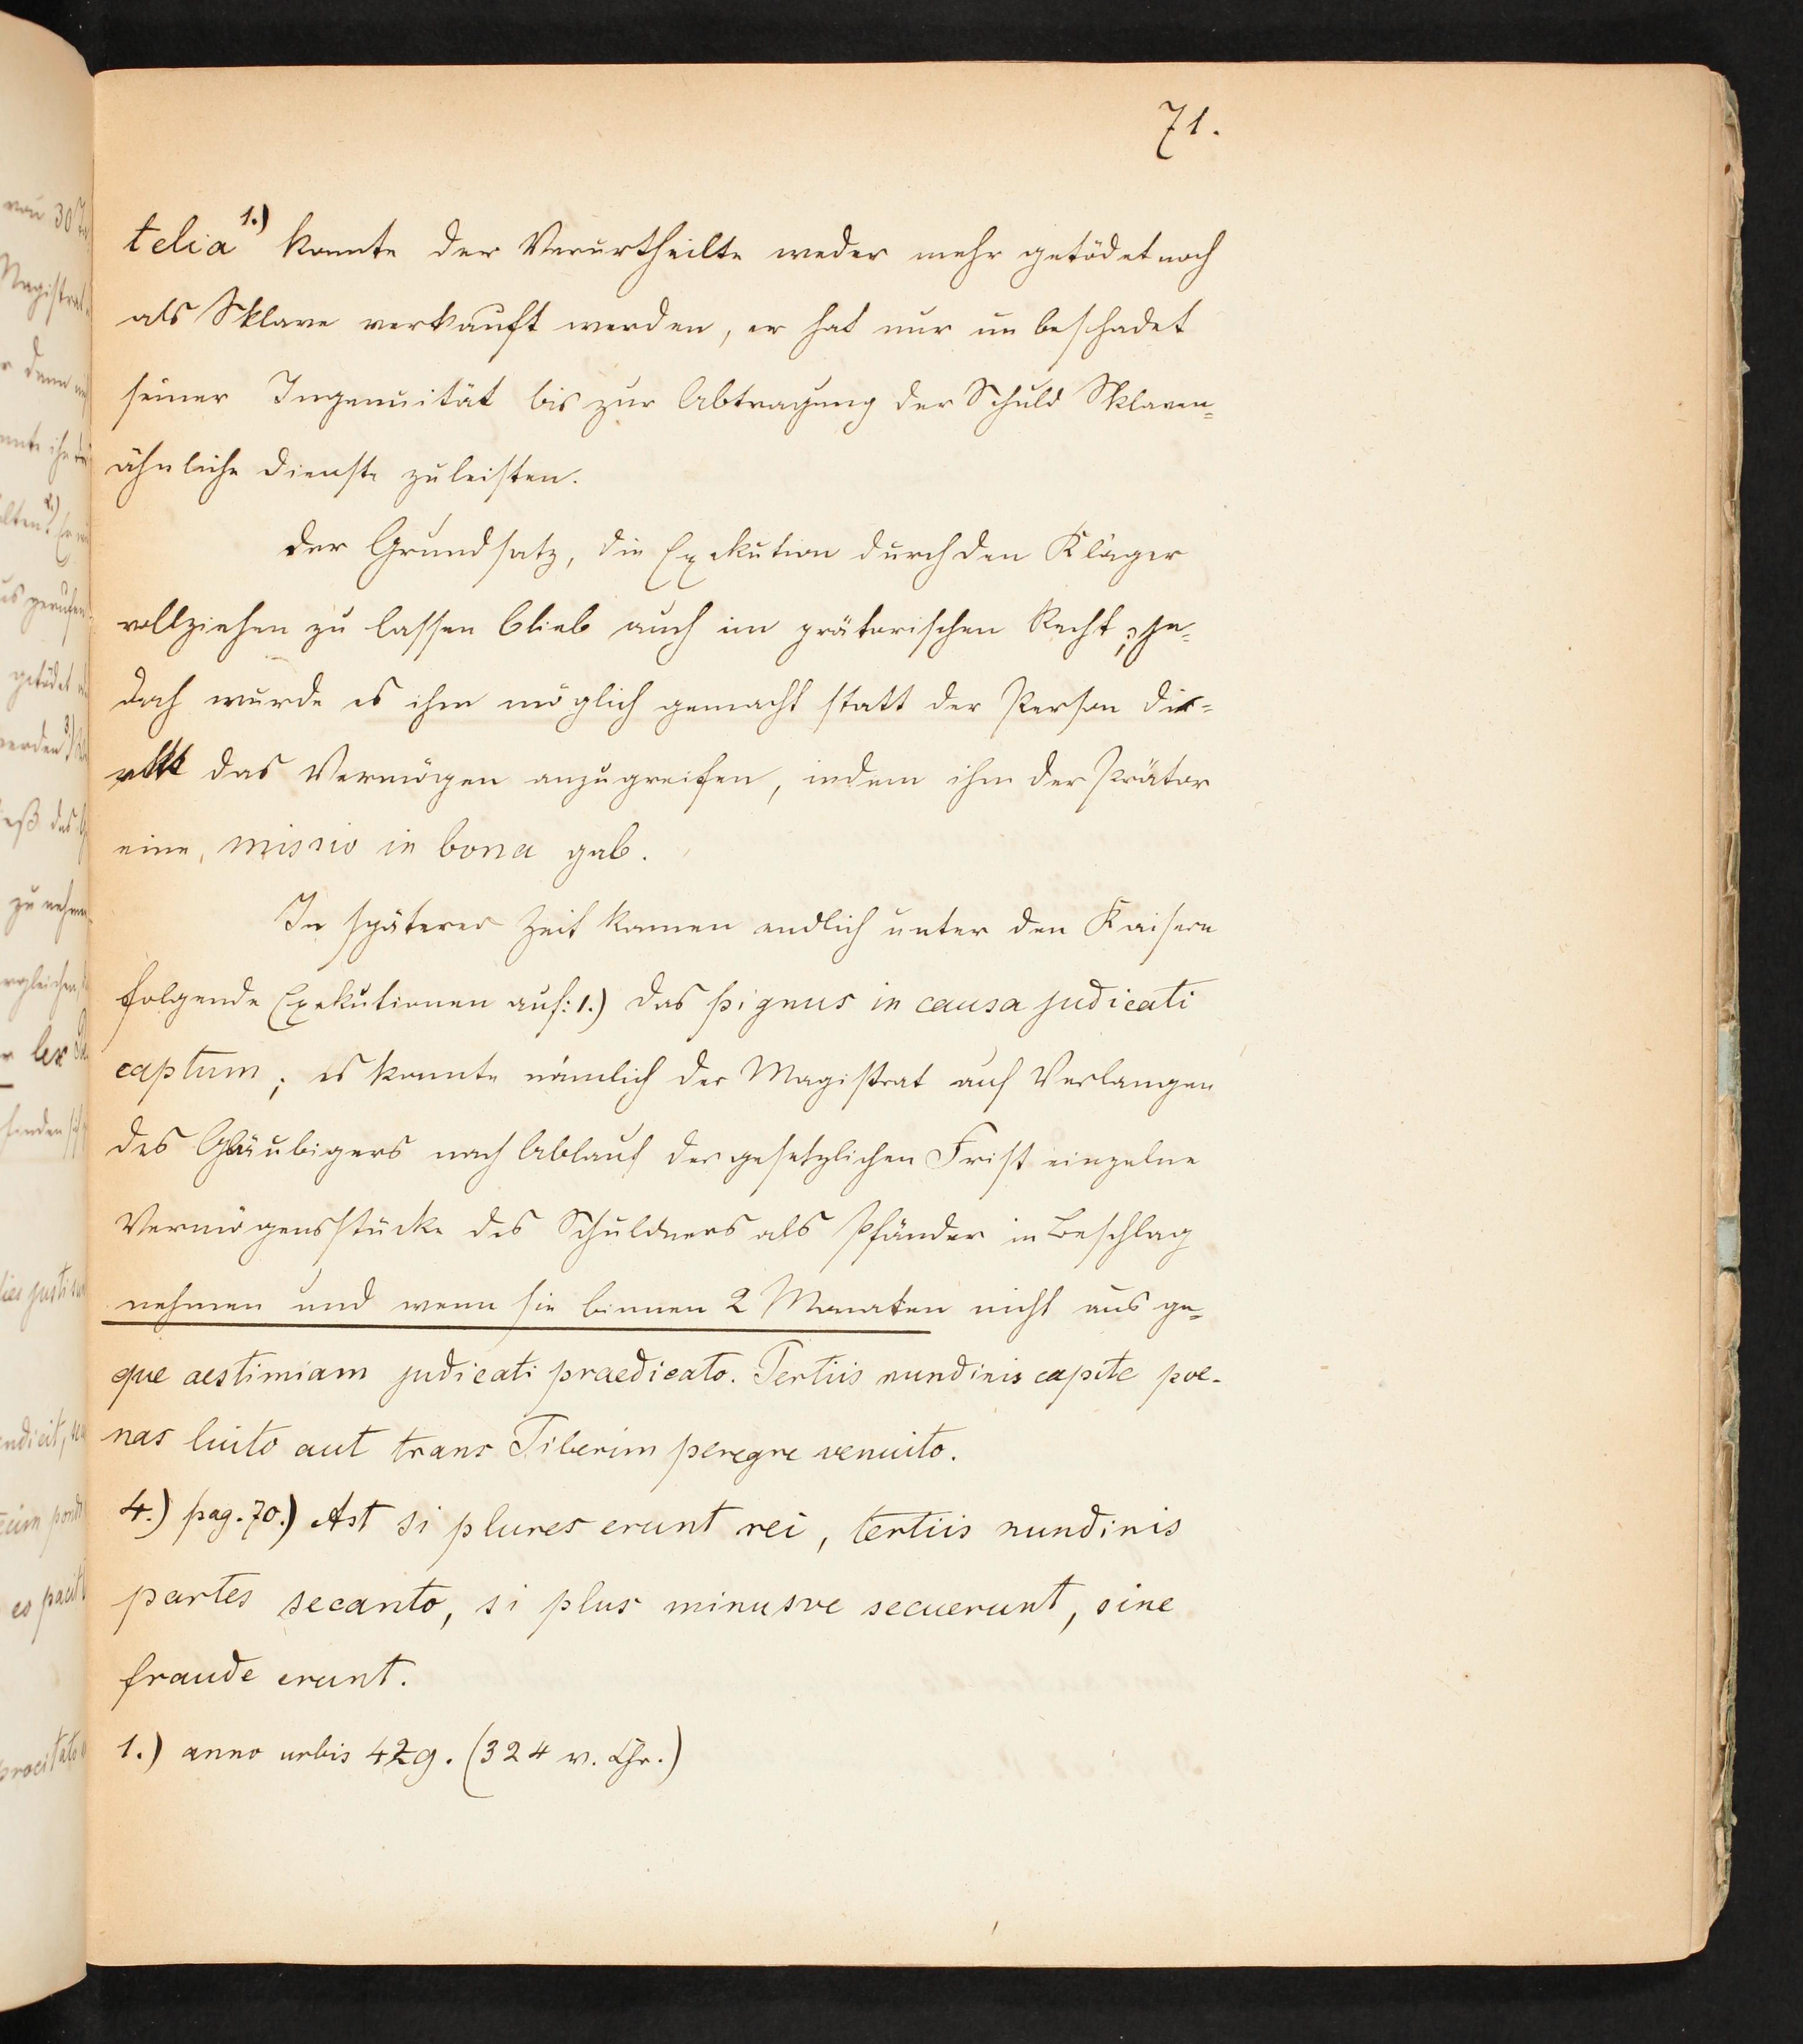 71.
telia 1.) konnte der Verurtheilte weder mehr getödet noch
als Sklave verkauft werden, er hat nur unbeschadet
seiner Ingenuität bis zur Abtragung der Schuld Sklaven-
ähnliche Dienste zu leisten.
Der Grundsatz, die Exekution durch den Kläger
vollziehen zu lassen blieb auch im prätorischen Recht; je-
doch wurde es ihm möglich gemacht statt der Person dir-
ekt das Vermögen anzugreifen, indem ihm der Prätor
eine, missio in bona gab.
In späterer Zeit kamen endlich unter den Kaisern
folgende Exekutionen auf: 1.) das pignus in causa judicati
captum; es konnte nämlich der Magistrat auf Verlangen
des Gläubigers nach Ablauf der gesetzlichen Frist einzelne
Vermögensstücke des Schuldners als Pfänder in Beschlag
nehmen und wenn sie binnen 2 Monaten nicht aus ge-
que aestimiam judicati praedicato. Tertiis nundinis capite poe-
nas luito aut trans Tiberim peregre venuito.
4.) pag. 70.) Ast si plures erunt rei, tertiis nundinis
partes secanto, si plus minusve secuerunt, sine
fraude erunt.
1.) anno urbis 429. (324 v. Chr.)